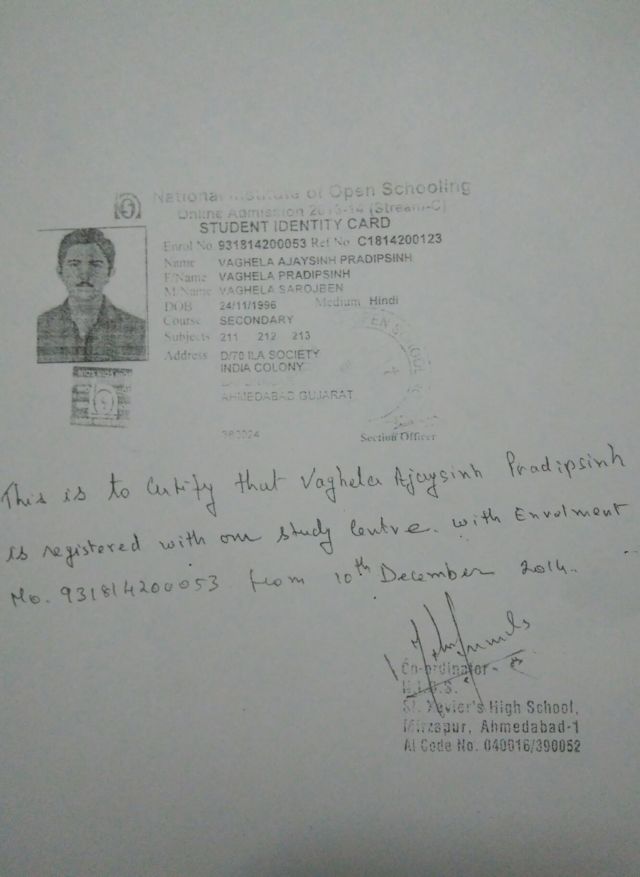 National Institute of Open Schooling
Online Admission 2013-14 (Stream-C)
STUDENT IDENTITY CARD
Enrol No. 931814200053 Ref No. C1814200123
Name VAGHELA AJAYSINH PRADIPSINH
F/Name VAGHELA PRADIPSINH
M/Name VAGHELA SAROJBEN
DOB 24/11/1996 Medium Hindi
Course SECONDARY
Subjects 211 212 213
Address D/70 ILA SOCIETY
INDIA COLONY
AHMEDABAD GUJARAT
Section Officer
This is to certify that Vaghela Ajaysinh Pradipsinh
is registered with our study Centre. with Enrolment
No. 931814200053 from 10th December 2014.
Co-ordinator
N.I.O.S.
St. Xavier's High School,
Mirzapur, Ahmedabad-1
AI Code No. 040016/390052